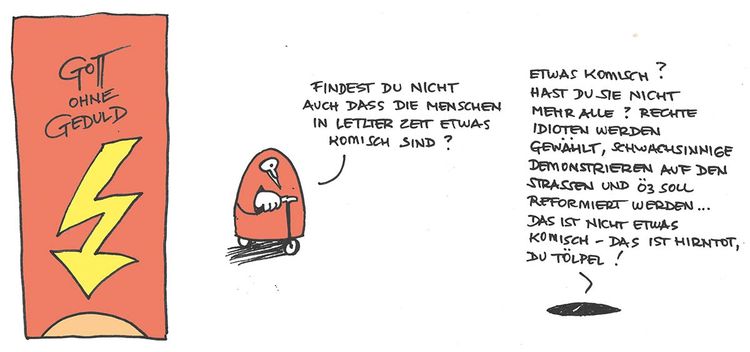 GOTT
OHNE
GEDULD
FINDEST DU NICHT
AUCH DASS DIE MENSCHEN
IN LETZTER ZEIT ETWAS
KOMISCH SIND?
ETWAS KOMISCH?
HAST DU SIE NICHT
MEHR ALLE? RECHTE
IDIOTEN WERDEN
GEWÄHLT, SCHWACHSINNIGE
DEMONSTRIEREN AUF DEN
STRASSEN UND Ö3 SOLL
REFORMIERT WERDEN...
DAS IST NICHT ETWAS
KOMISCH - DAS IST HIRNTOT,
DU TÖLPEL!